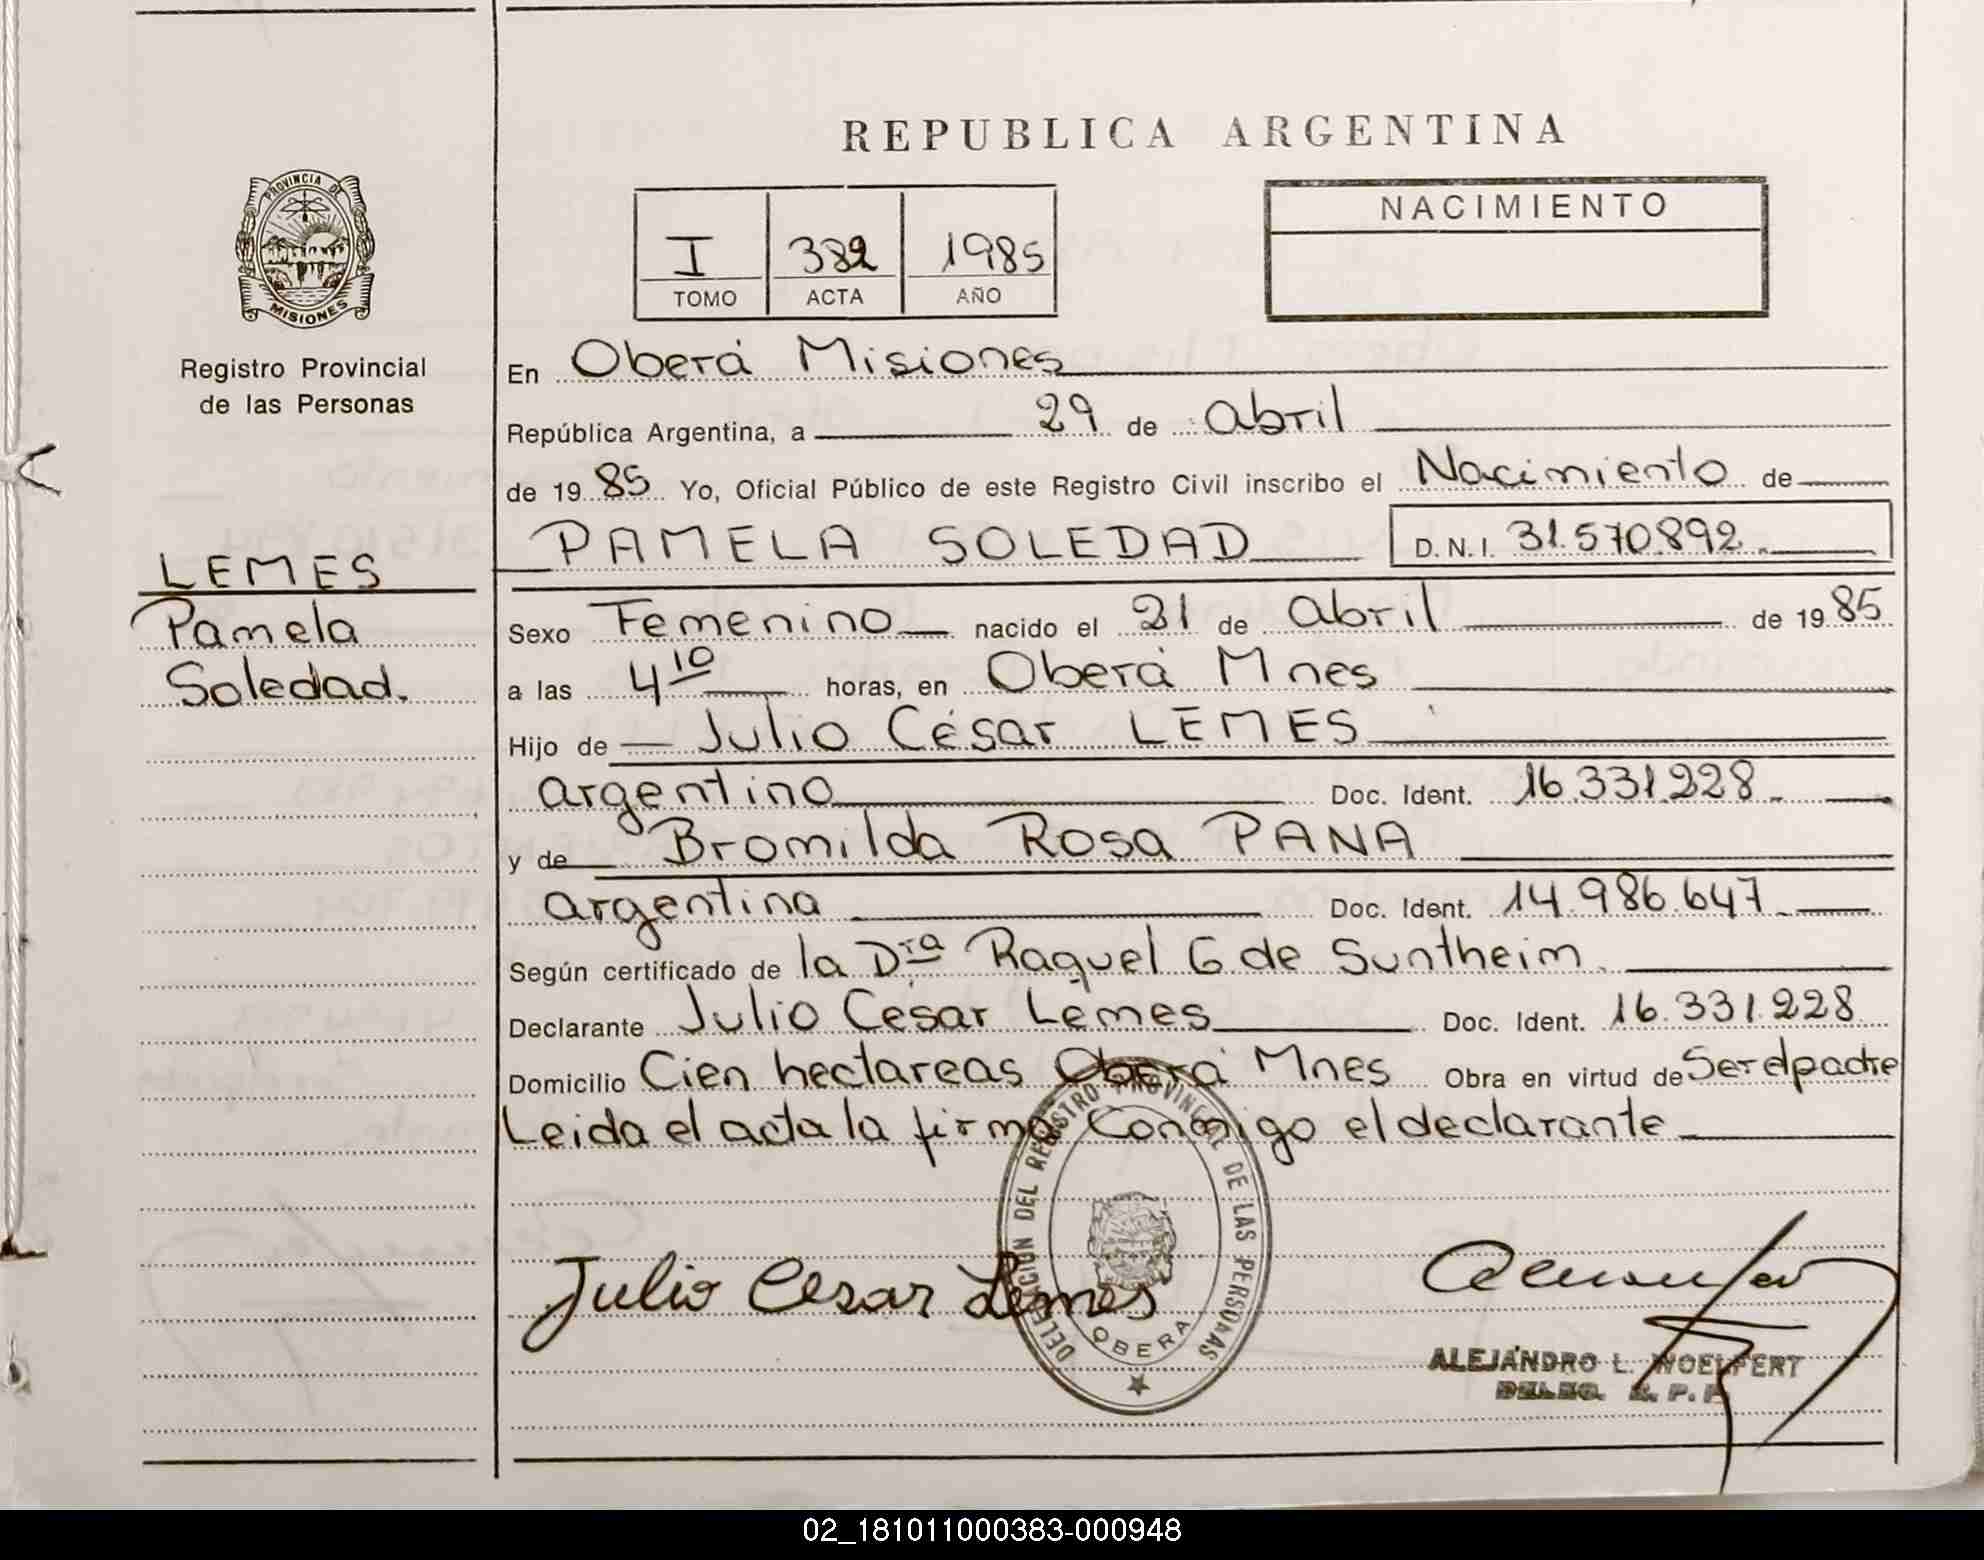 REPUBLICA ARGENTINA
PROVINCIA DE
MISIONES
Registro Provincial
de las Personas
I 382 1985
TOMO ACTA AÑO
NACIMIENTO
En Oberá Misiones
República Argentina, a 29 de abril
de 19 85 Yo, Oficial Público de este Registro Civil inscribo el Nacimiento de
PAMELA SOLEDAD D.N.I. 31.570.892
LEMES
Pamela
Soledad.
Sexo Femenino nacido el 21 de abril de 19 85
a las 4 10 horas, en Oberá Mnes
Hijo de Julio César LEMES
argentino Doc. Ident. 16.331.228
y de Bromilda Rosa PANA
argentina Doc. Ident. 14.986.647
Según certificado de la Dra Raquel G de Suntheim
Declarante Julio César Lemes Doc. Ident. 16.331.228
Domicilio Cien hectareas Oberá Mnes Obra en virtud de Ser el padre
Leida el acta la firma Conmigo el declarante
DELEGACION DEL REGISTRO PROVINCIAL DE LAS PERSONAS
OBERA
Julio Cesar Lemes
ALEJANDRO L. WOELFERT
DELEG. R. P. P.
02_181011000383-000948